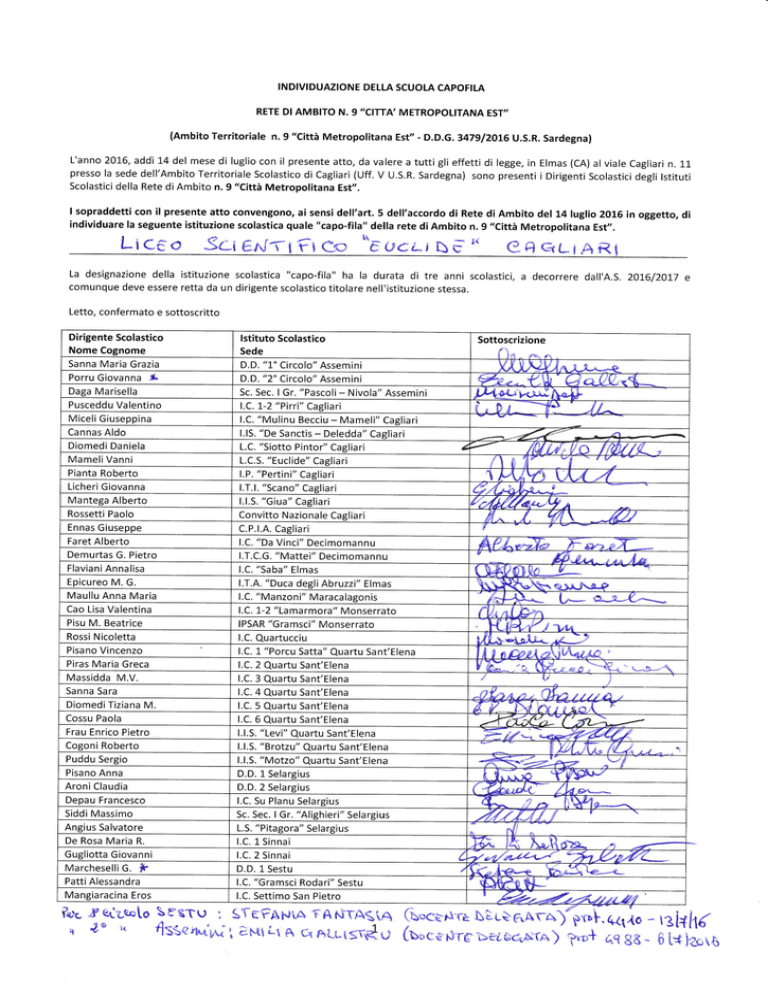 INDIVIDUAZIONE DELLA SCUOLA CAPOFILA
RETE DI AMBITO N. 9 “CITTA’ METROPOLITANA EST”
(Ambito Territoriale n. 9 “Città Metropolitana Est” - D.D.G. 3479/2016 U.S.R. Sardegna)
L'anno 2016, addì 14 del mese di luglio con il presente atto, da valere a tutti gli effetti di legge, in Elmas (CA) al viale Cagliari n. 11
presso la sede dell’Ambito Territoriale Scolastico di Cagliari (Uff. V U.S.R. Sardegna) sono presenti i Dirigenti Scolastici degli Istituti
Scolastici della Rete di Ambito n. 9 “Città Metropolitana Est”.
I sopraddetti con il presente atto convengono, ai sensi dell’art. 5 dell’accordo di Rete di Ambito del 14 luglio 2016 in oggetto, di
individuare la seguente istituzione scolastica quale "capo-fila" della rete di Ambito n. 9 “Città Metropolitana Est”.
LICEO SCIENTIFICO "EUCLIDE" CAGLIARI
La designazione della istituzione scolastica "capo-fila" ha la durata di tre anni scolastici, a decorrere dall'A.S. 2016/2017 e
comunque deve essere retta da un dirigente scolastico titolare nell'istituzione stessa.
Letto, confermato e sottoscritto
Dirigente Scolastico Istituto Scolastico Sottoscrizione
Nome Cognome Sede
Sanna Maria Grazia D.D. “1° Circolo” Assemini
Porru Giovanna * D.D. “2° Circolo” Assemini
Daga Marisella Sc. Sec. I Gr. “Pascoli – Nivola” Assemini
Pusceddu Valentino I.C. 1-2 “Pirri” Cagliari
Miceli Giuseppina I.C. “Mulinu Becciu – Mameli” Cagliari
Cannas Aldo I.IS. “De Sanctis – Deledda” Cagliari
Diomedi Daniela L.C. “Siotto Pintor” Cagliari
Mameli Vanni L.C.S. “Euclide” Cagliari
Pianta Roberto I.P. “Pertini” Cagliari
Licheri Giovanna I.T.I. “Scano” Cagliari
Mantega Alberto I.I.S. “Giua” Cagliari
Rossetti Paolo Convitto Nazionale Cagliari
Ennas Giuseppe C.P.I.A. Cagliari
Faret Alberto I.C. “Da Vinci” Decimomannu Alberto Faret
Demurtas G. Pietro I.T.C.G. “Mattei” Decimomannu
Flaviani Annalisa I.C. “Saba” Elmas
Epicureo M. G. I.T.A. “Duca degli Abruzzi” Elmas
Maullu Anna Maria I.C. “Manzoni” Maracalagonis
Cao Lisa Valentina I.C. 1-2 “Lamarmora” Monserrato
Pisu M. Beatrice IPSAR “Gramsci” Monserrato
Rossi Nicoletta I.C. Quartucciu
Pisano Vincenzo I.C. 1 “Porcu Satta” Quartu Sant’Elena
Piras Maria Greca I.C. 2 Quartu Sant’Elena
Massidda M.V. I.C. 3 Quartu Sant’Elena
Sanna Sara I.C. 4 Quartu Sant’Elena Sara Sanna
Diomedi Tiziana M. I.C. 5 Quartu Sant’Elena
Cossu Paola I.C. 6 Quartu Sant’Elena
Frau Enrico Pietro I.I.S. “Levi” Quartu Sant’Elena
Cogoni Roberto I.I.S. “Brotzu” Quartu Sant’Elena
Puddu Sergio I.I.S. “Motzo” Quartu Sant’Elena
Pisano Anna D.D. 1 Selargius
Aroni Claudia D.D. 2 Selargius
Depau Francesco I.C. Su Planu Selargius
Siddi Massimo Sc. Sec. I Gr. “Alighieri” Selargius
Angius Salvatore L.S. “Pitagora” Selargius
De Rosa Maria R. I.C. 1 Sinnai
Gugliotta Giovanni I.C. 2 Sinnai
Marcheselli G. * D.D. 1 Sestu
Patti Alessandra I.C. “Gramsci Rodari” Sestu
Mangiaracina Eros I.C. Settimo San Pietro
SESTU : STEFANIA FANTASIA (DOCENTE DELEGATA) prot. 4410 - 13/7/16
" 2° " Assemini: EMILIA GALLISTRU (DOCENTE DELEGATA) prot 4988 - 6/7/2016
1